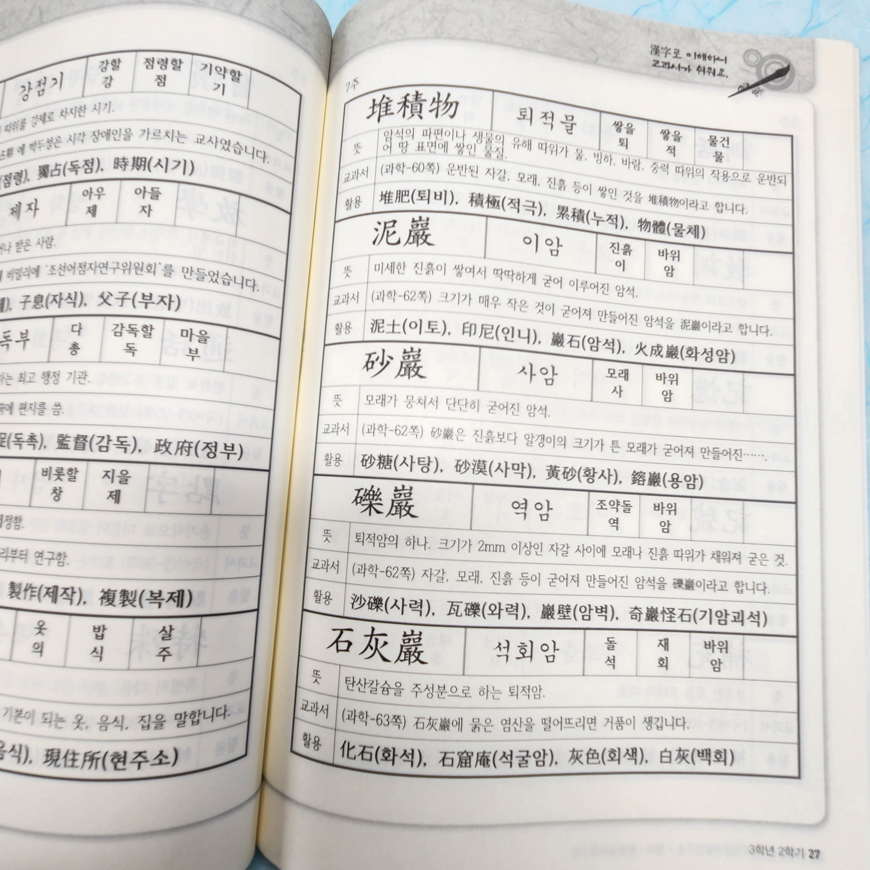 강점기 강할 강 점령할 점 기약할 기
따위를 강제로 차지한 시기.
에 박두성은 시각 장애인을 가르치는 교사였습니다.
(점령), 獨占(독점), 時期(시기)
제자 아우 제 아들 자
받은 사람.
비밀리에 '조선어점자연구위원회'를 만들었습니다.
子息(자식), 父子(부자)
독부 다 총 감독할 독 마을 부
하는 최고 행정 기관.
에 편지를 씀.
(독촉), 監督(감독), 政府(정부)
비롯할 창 지을 제
정함.
부터 연구함.
製作(제작), 複製(복제)
옷 의 밥 식 살 주
기본이 되는 옷, 음식, 집을 말합니다.
음식), 現住所(현주소)
漢字로 이해하니
교과서가 쉬워요.
7주
堆積物 퇴적물 쌓을 퇴 쌓을 적 물건 물
뜻 암석의 파편이나 생물의 유해 따위가 물, 빙하, 바람, 중력 따위의 작용으로 운반되
어 땅 표면에 쌓인 물질.
교과서 (과학-60쪽) 운반된 자갈, 모래, 진흙 등이 쌓인 것을 堆積物이라고 합니다.
활용 堆肥(퇴비), 積極(적극), 累積(누적), 物體(물체)
泥巖 이암 진흙 이 바위 암
뜻 미세한 진흙이 쌓여서 딱딱하게 굳어 이루어진 암석.
교과서 (과학-62쪽) 크기가 매우 작은 것이 굳어져 만들어진 암석을 泥巖이라고 합니다.
활용 泥土(이토), 印尼(인니), 巖石(암석), 火成巖(화성암)
砂巖 사암 모래 사 바위 암
뜻 모래가 뭉쳐서 단단히 굳어진 암석.
교과서 (과학-62쪽) 砂巖은 진흙보다 알갱이의 크기가 튼 모래가 굳어져 만들어진……
활용 砂糖(사탕), 砂漠(사막), 黃砂(황사), 鎔巖(용암)
礫巖 역암 조약돌 역 바위 암
뜻 퇴적암의 하나. 크기가 2mm 이상인 자갈 사이에 모래나 진흙 따위가 채워져 굳은 것.
교과서 (과학-62쪽) 자갈, 모래, 진흙 등이 굳어져 만들어진 암석을 礫巖이라고 합니다.
활용 沙礫(사력), 瓦礫(와력), 巖壁(암벽), 奇巖怪石(기암괴석)
石灰巖 석회암 돌 석 재 회 바위 암
뜻 탄산칼슘을 주성분으로 하는 퇴적암.
교과서 (과학-63쪽) 石灰巖에 묽은 염산을 떨어뜨리면 거품이 생깁니다.
활용 化石(화석), 石窟庵(석굴암), 灰色(회색), 白灰(백회)
3학년 2학기 27